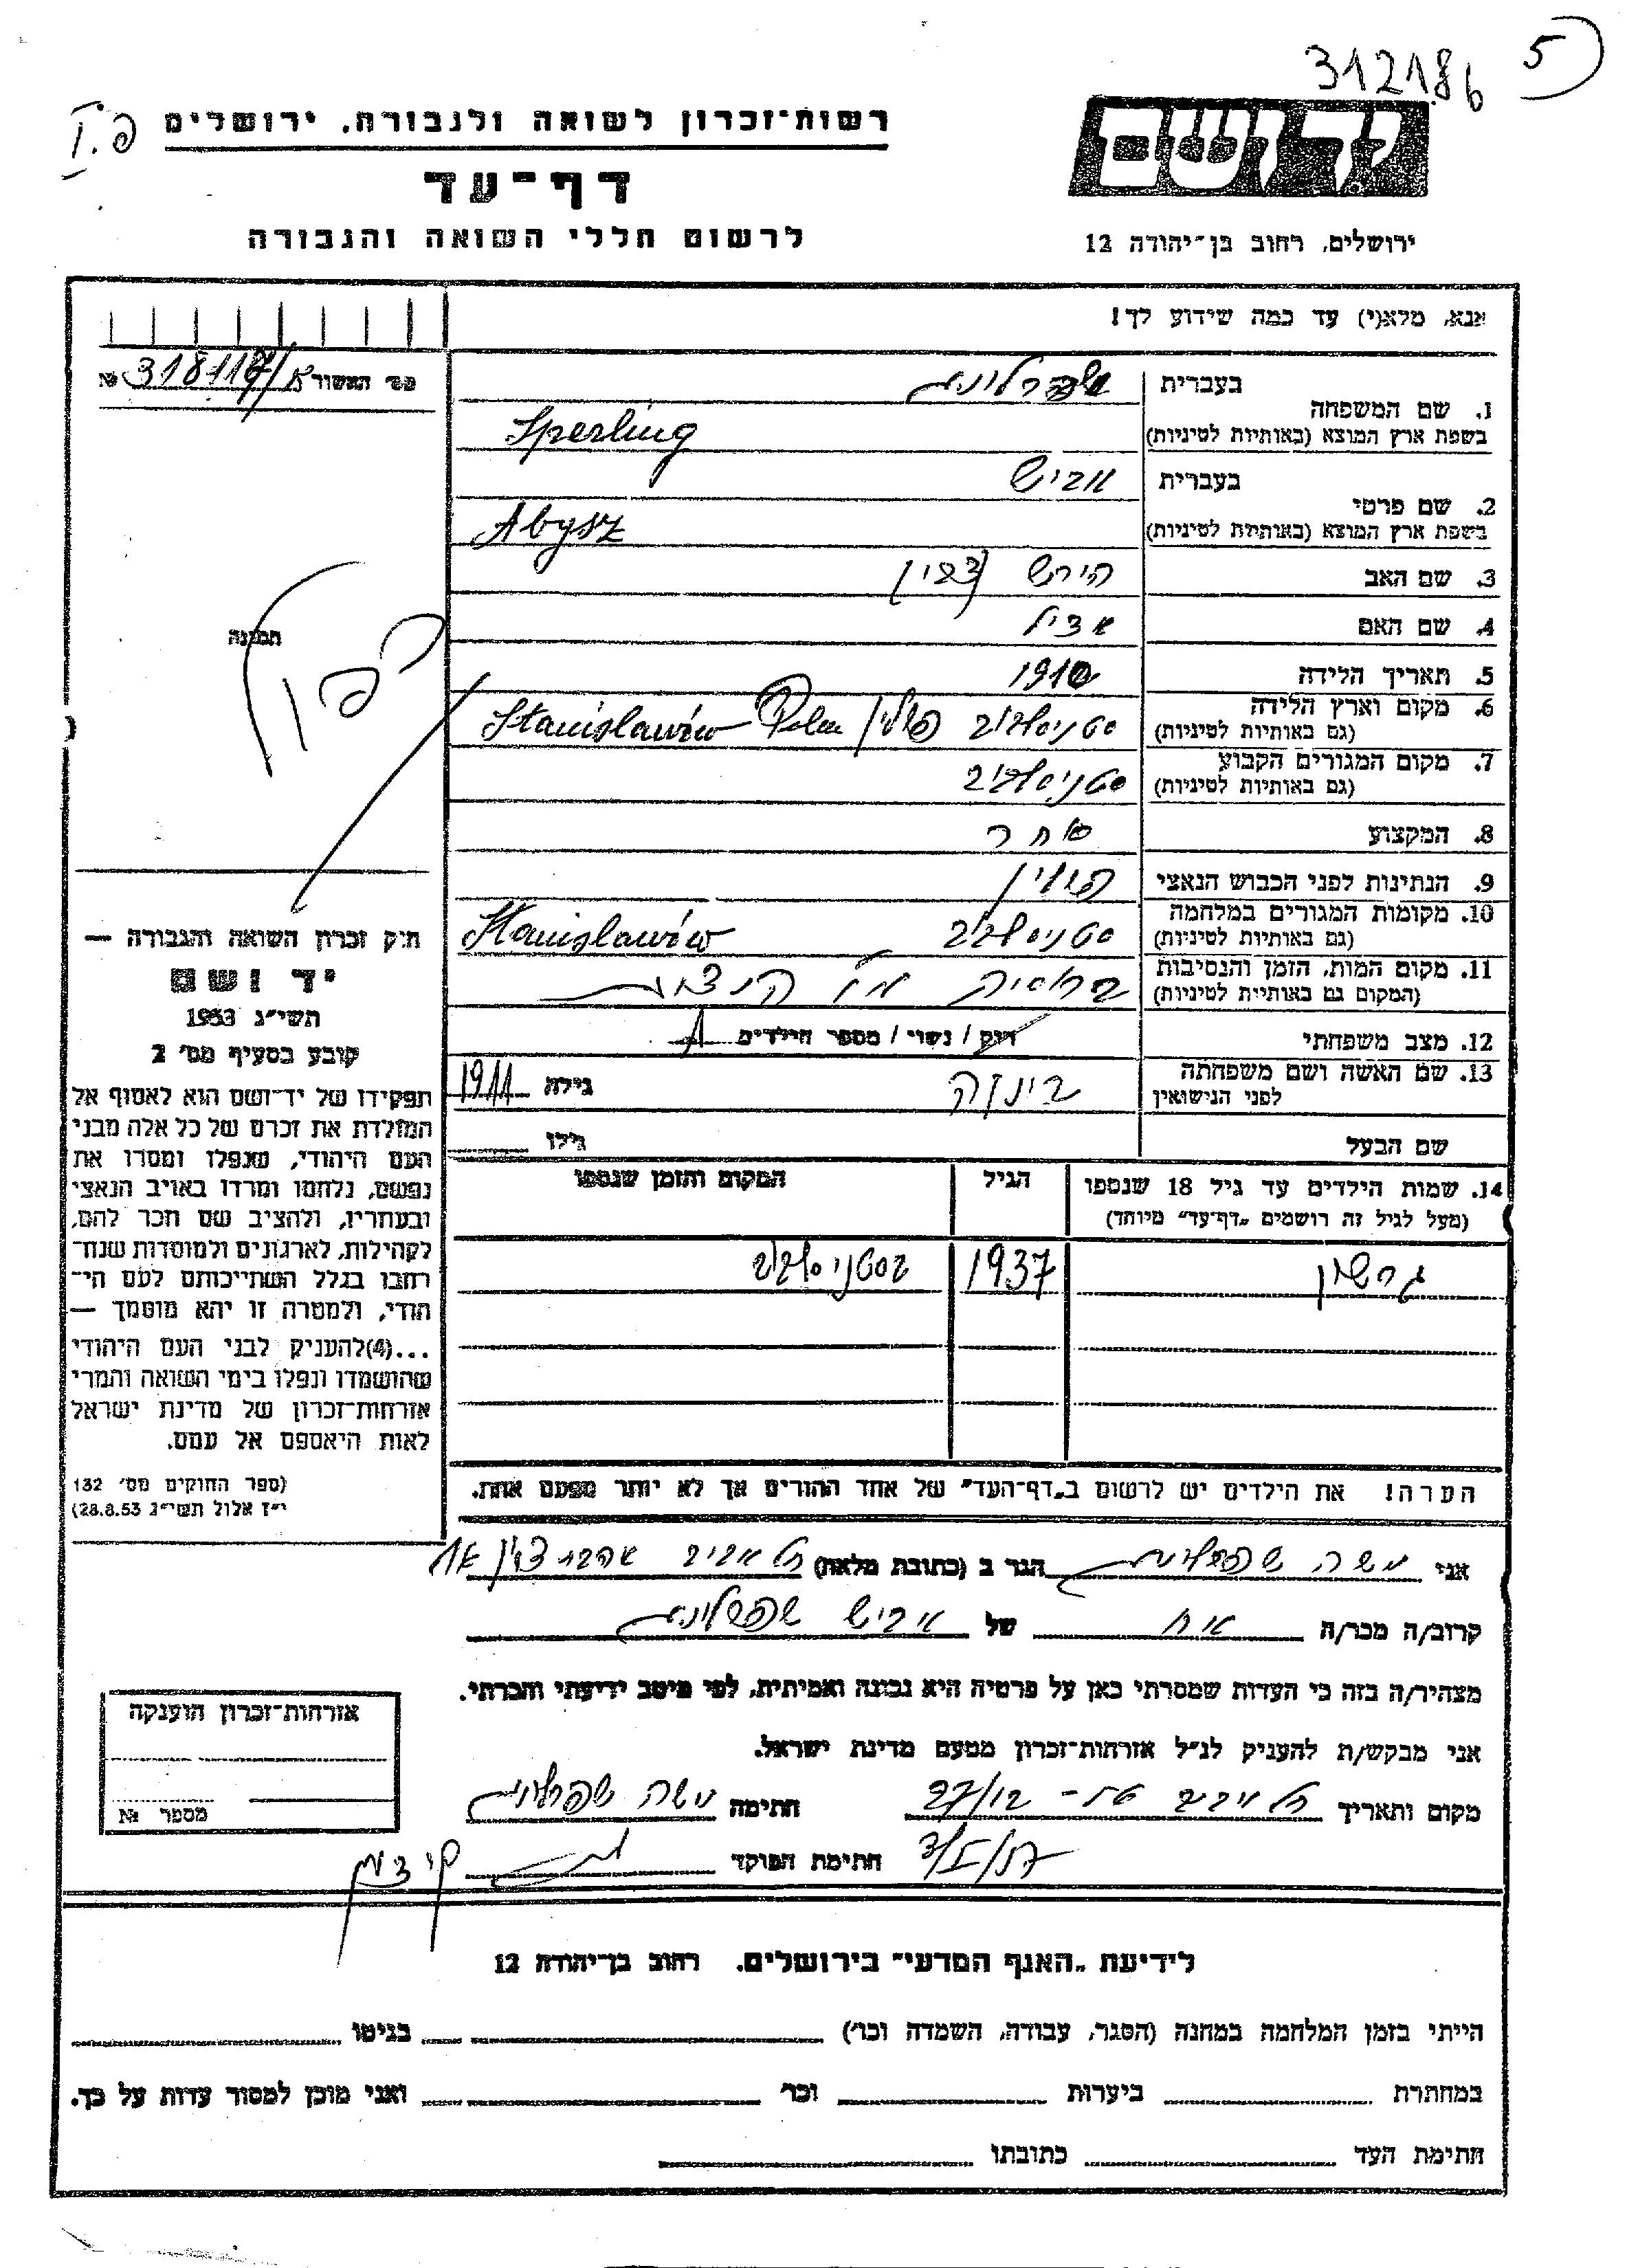 312186
5
רשות־זכרון לשואה ולגבורה, ירושלים
דף־עד
לרשום חללי השואה והגבורה
ירושלים, רחוב בן־יהודה 12
אנא, מלא(י) עד כמה שידוע לך!
בעברית שפרלינג
1. שם המשפחה
בשפת ארץ המוצא (באותיות לטיניות) Sperling
בעברית אביש
2. שם פרטי
בשפת ארץ המוצא (באותיות לטיניות) Abysz
3. שם האב הירש
4. שם האם
5. תאריך הלידה 1910
6. מקום וארץ הלידה
(גם באותיות לטיניות) סטניסלביב פולין Stanisławów
7. מקום המגורים הקבוע
(גם באותיות לטיניות) סטניסלביב
8. המקצוע סוחר
9. הנתינות לפני הכבוש הנאצי פולין
10. מקומות המגורים במלחמה
(גם באותיות לטיניות) סטניסלביב Stanisławów
11. מקום המות, הזמן והנסיבות
(המקום גם באותיות לטיניות)
12. מצב משפחתי רוק / נשוי / מספר הילדים 1
13. שם האשה ושם משפחתה
לפני הנישואין גילה 1911
שם הבעל גילו
14. שמות הילדים עד גיל 18 שנספו
(מעל לגיל זה רושמים „דף־עד” מיוחד)
הגיל
המקום והזמן שנספו
גרשון 1937 בסטניסלביב
הערה! את הילדים יש לרשום ב„דף־העד” של אחד ההורים אך לא יותר מפעם אחת.
מס׳ האשור
№ 318117/א
תמונה
חק זכרון השואה והגבורה —
יד ושם
תשי״ג 1953
קובע בסעיף מס׳ 2
תפקידו של יד־ושם הוא לאסוף אל
המולדת את זכרם של כל אלה מבני
העם היהודי, שנפלו ומסרו את
נפשם, נלחמו ומרדו באויב הנאצי
ובעוזריו, ולהציב שם וזכר להם,
לקהילות, לארגונים ולמוסדות שנח־
רבו בגלל השתייכותם לעם הי־
הודי, ולמטרה זו יהא מוסמך —
...(4) להעניק לבני העם היהודי
שהושמדו ונפלו בימי השואה והמרי
אזרחות־זכרון של מדינת ישראל
לאות היאספם אל עמם.
(ספר החוקים מס׳ 132
י״ז אלול תשי״ג 28.8.53)
אני משה שפרלינג הגר ב (כתובת מלאה) תל אביב
קרוב/ה מכר/ה אח של אביש שפרלינג
מצהיר/ה בזה כי העדות שמסרתי כאן על פרטיה היא נכונה ואמיתית, לפי מיטב ידיעתי והכרתי.
אני מבקש/ת להעניק לנ״ל אזרחות־זכרון מטעם מדינת ישראל.
מקום ותאריך תל אביב 27/12 חתימה משה שפרלינג
חתימת הפוקד
אזרחות־זכרון הוענקה
מספר №
לידיעת „האגף המדעי” בירושלים. רחוב בן־יהודה 12
הייתי בזמן המלחמה במחנה (הסגר, עבודה, השמדה וכו׳) בגיטו
במחתרת ביערות וכו׳ ואני מוכן למסור עדות על כך.
חתימת העד כתובתו